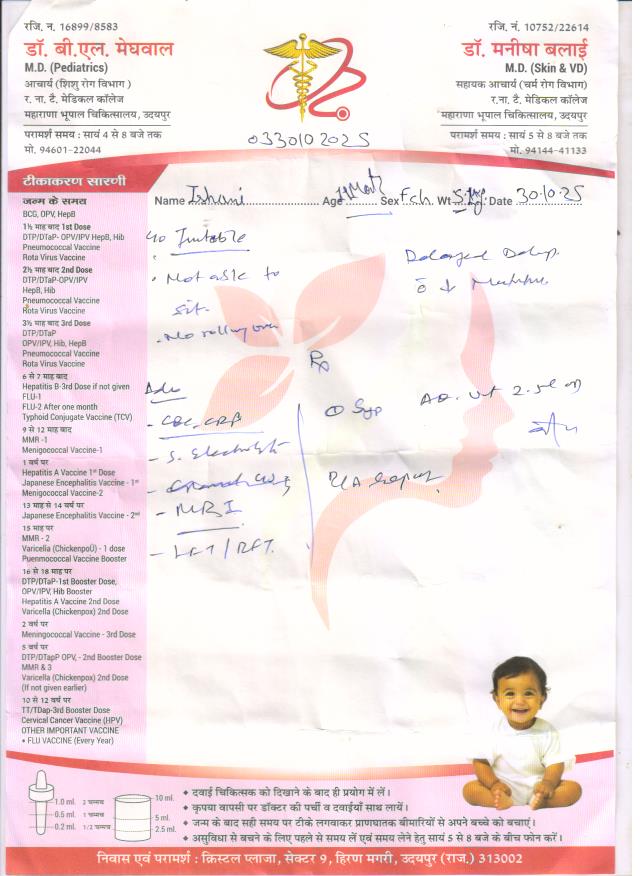 रजि. न. 16899/8583
डॉ. बी.एल. मेघवाल
M.D. (Pediatrics)
आचार्य (शिशु रोग विभाग )
र. ना. टै. मेडिकल कॉलेज
महाराणा भूपाल चिकित्सालय, उदयपुर
परामर्श समय : सायं 4 से 8 बजे तक
मो. 94601-22044
रजि. नं. 10752/22614
डॉ. मनीषा बलाई
M.D. (Skin & VD)
सहायक आचार्य (चर्म रोग विभाग)
र.ना. टै. मेडिकल कॉलेज
महाराणा भूपाल चिकित्सालय, उदयपुर
परामर्श समय : सायं 5 से 8 बजे तक
मो. 94144-41133
033010 2025
टीकाकरण सारणी
Name Ishani Age Sex Fch. Wt Date 30.10.25
जन्म के समय
BCG, OPV, HepB
1½ माह बाद 1st Dose
DTP/DTaP- OPV/IPV HepB, Hib
Pneumococcal Vaccine
Rota Virus Vaccine
2½ माह बाद 2nd Dose
DTP/DTaP-OPV/IPV
HepB, Hib
Pneumococcal Vaccine
Rota Virus Vaccine
3½ माह बाद 3rd Dose
DTP/DTaP
OPV/IPV, Hib, HepB
Pneumococcal Vaccine
Rota Virus Vaccine
6 से 7 माह बाद
Hepatitis B-3rd Dose if not given
FLU-1
FLU-2 After one month
Typhoid Conjugate Vaccine (TCV)
9 से 12 माह बाद
MMR -1
Menigococcal Vaccine-1
1 वर्ष पर
Hepatitis A Vaccine 1st Dose
Japanese Encephalitis Vaccine - 1st
Menigococcal Vaccine-2
13 माह से 14 वर्ष पर
Japanese Encephalitis Vaccine - 2nd
15 माह पर
MMR - 2
Varicella (ChickenpoÜ) - 1 dose
Puenmococcal Vaccine Booster
16 से 18 माह पर
DTP/DTaP-1st Booster Dose,
OPV/IPV, Hib Booster
Hepatitis A Vaccine 2nd Dose
Varicella (Chickenpox) 2nd Dose
2 वर्ष पर
Meningococcal Vaccine - 3rd Dose
5 वर्ष पर
DTP/DTapP OPV, - 2nd Booster Dose
MMR & 3
Varicella (Chickenpox) 2nd Dose
(If not given earlier)
10 से 12 वर्ष पर
TT/TDap-3rd Booster Dose
Cervical Cancer Vaccine (HPV)
OTHER IMPORTANT VACCINE
• FLU VACCINE (Every Year)
Irritable
• Not able to
sit.
- No rolling over
Delayed
Rx
Adv
- CBC, CRP
- S. Electrolyte
- MRI
- LFT / RFT.
① Syp
1.0 ml. 2 चम्मच
0.5 ml. 1 चम्मच
0.2 ml. 1/2 चम्मच
10 ml.
5 ml.
2.5 ml.
♦ दवाई चिकित्सक को दिखाने के बाद ही प्रयोग में लें।
♦ कृपया वापसी पर डॉक्टर की पर्ची व दवाईयाँ साथ लायें।
♦ जन्म के बाद सही समय पर टीके लगवाकर प्राणघातक बीमारियों से अपने बच्चे को बचाएं।
♦ असुविधा से बचने के लिए पहले से समय लें एवं समय लेने हेतु सायं 5 से 8 बजे के बीच फोन करें।
निवास एवं परामर्श : क्रिस्टल प्लाजा, सेक्टर 9, हिरण मगरी, उदयपुर (राज.) 313002